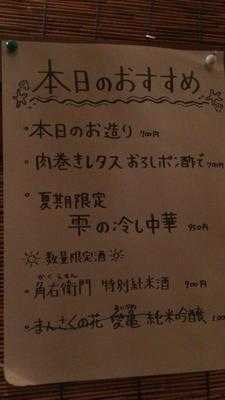 本日のおすすめ
・本日のお造り 700円
・肉巻きレタス おろしポン酢で 700円
・夏期限定
雫の冷し中華 950円
数量限定酒
かくえもん
・角右衛門 特別純米酒 900円
・まんさくの花 愛亀 純米吟醸